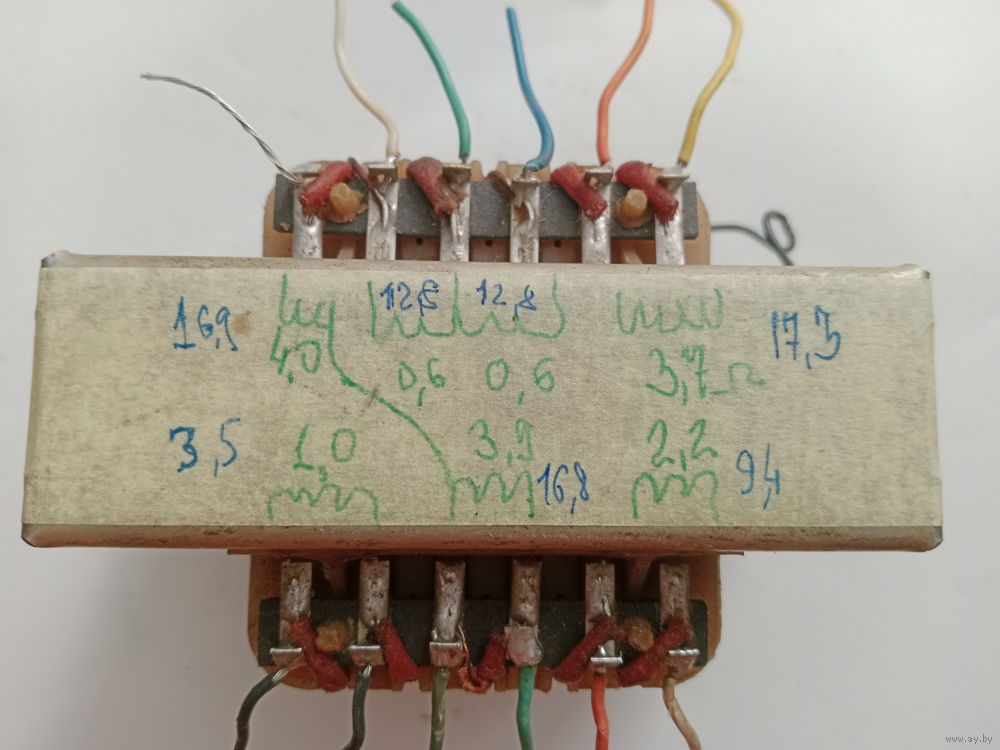 16,9 12,8 12,8 17,3
4,0 0,6 0,6 3,7 Ω
3,5 1,0 3,9 2,2
16,8 9,4
www.ay.by